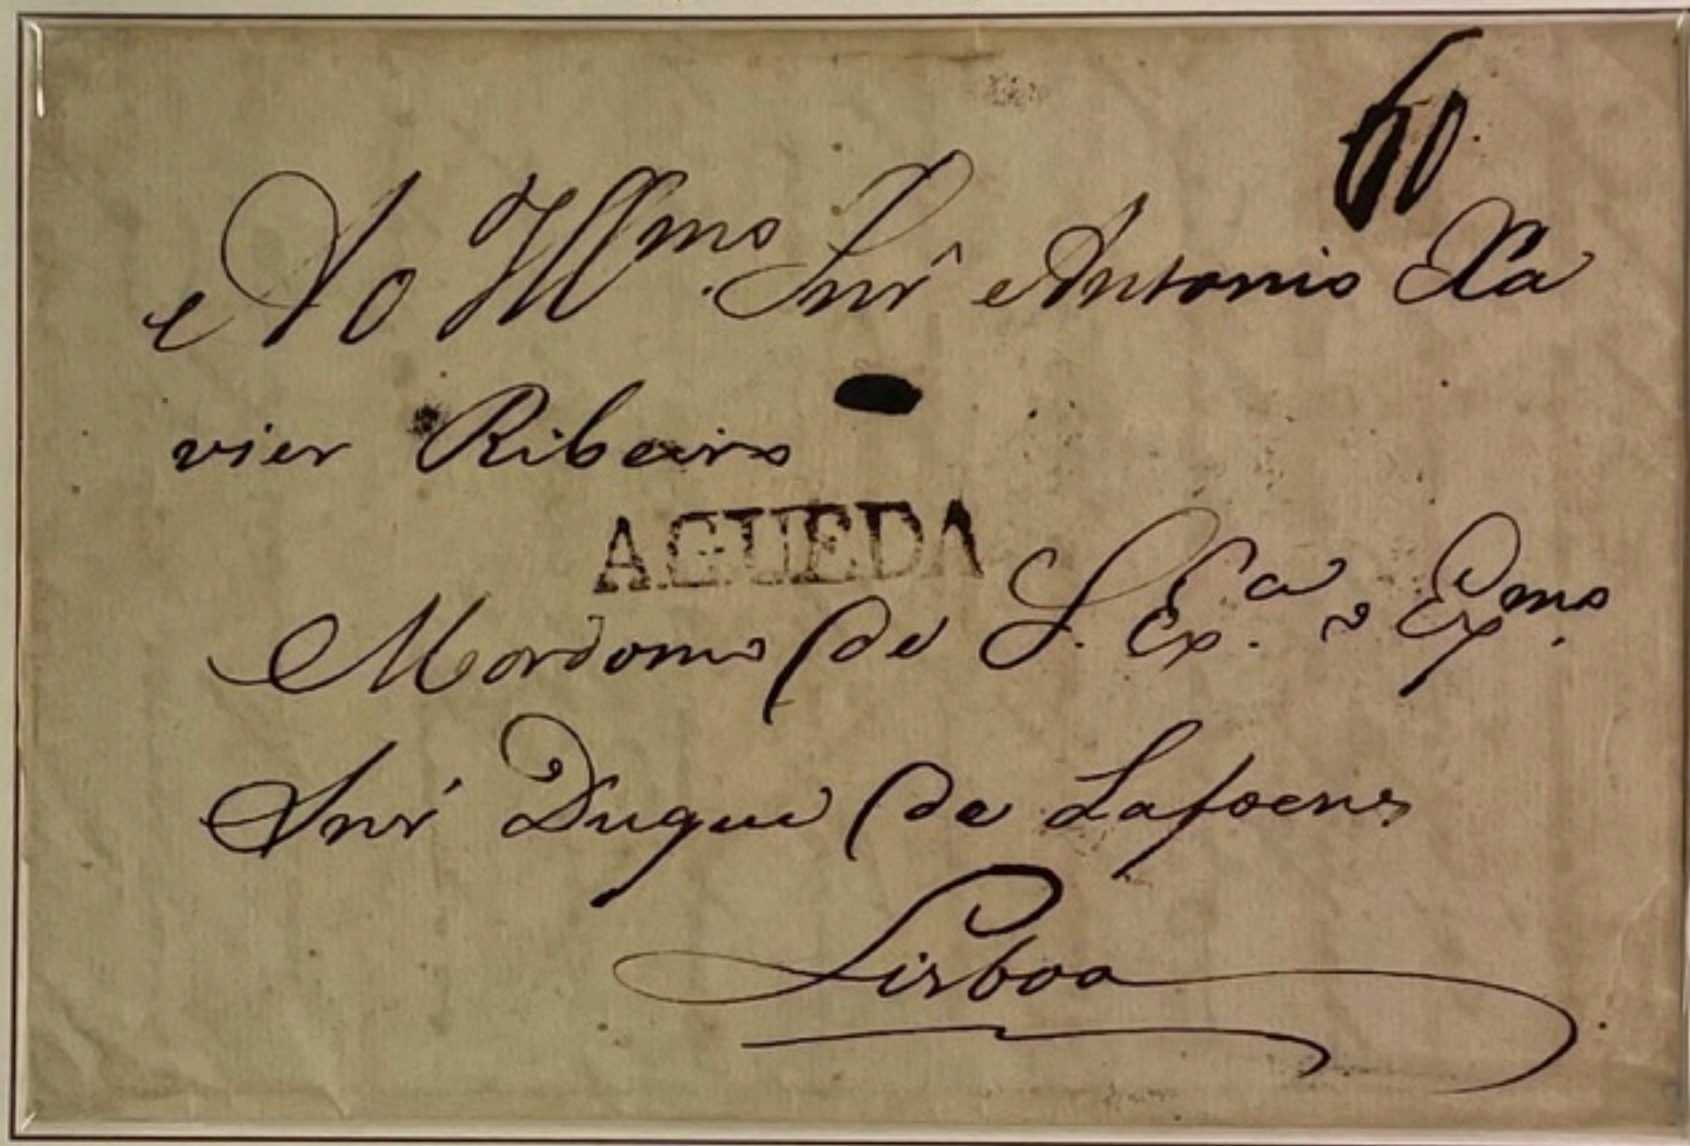 60
Ao Illmo. Snr. Antonio Xa
vier Ribeiro
AGUEDA
Mordomo de S. Exa. o Exmo.
Snr Duque de Lafoens
Lisboa